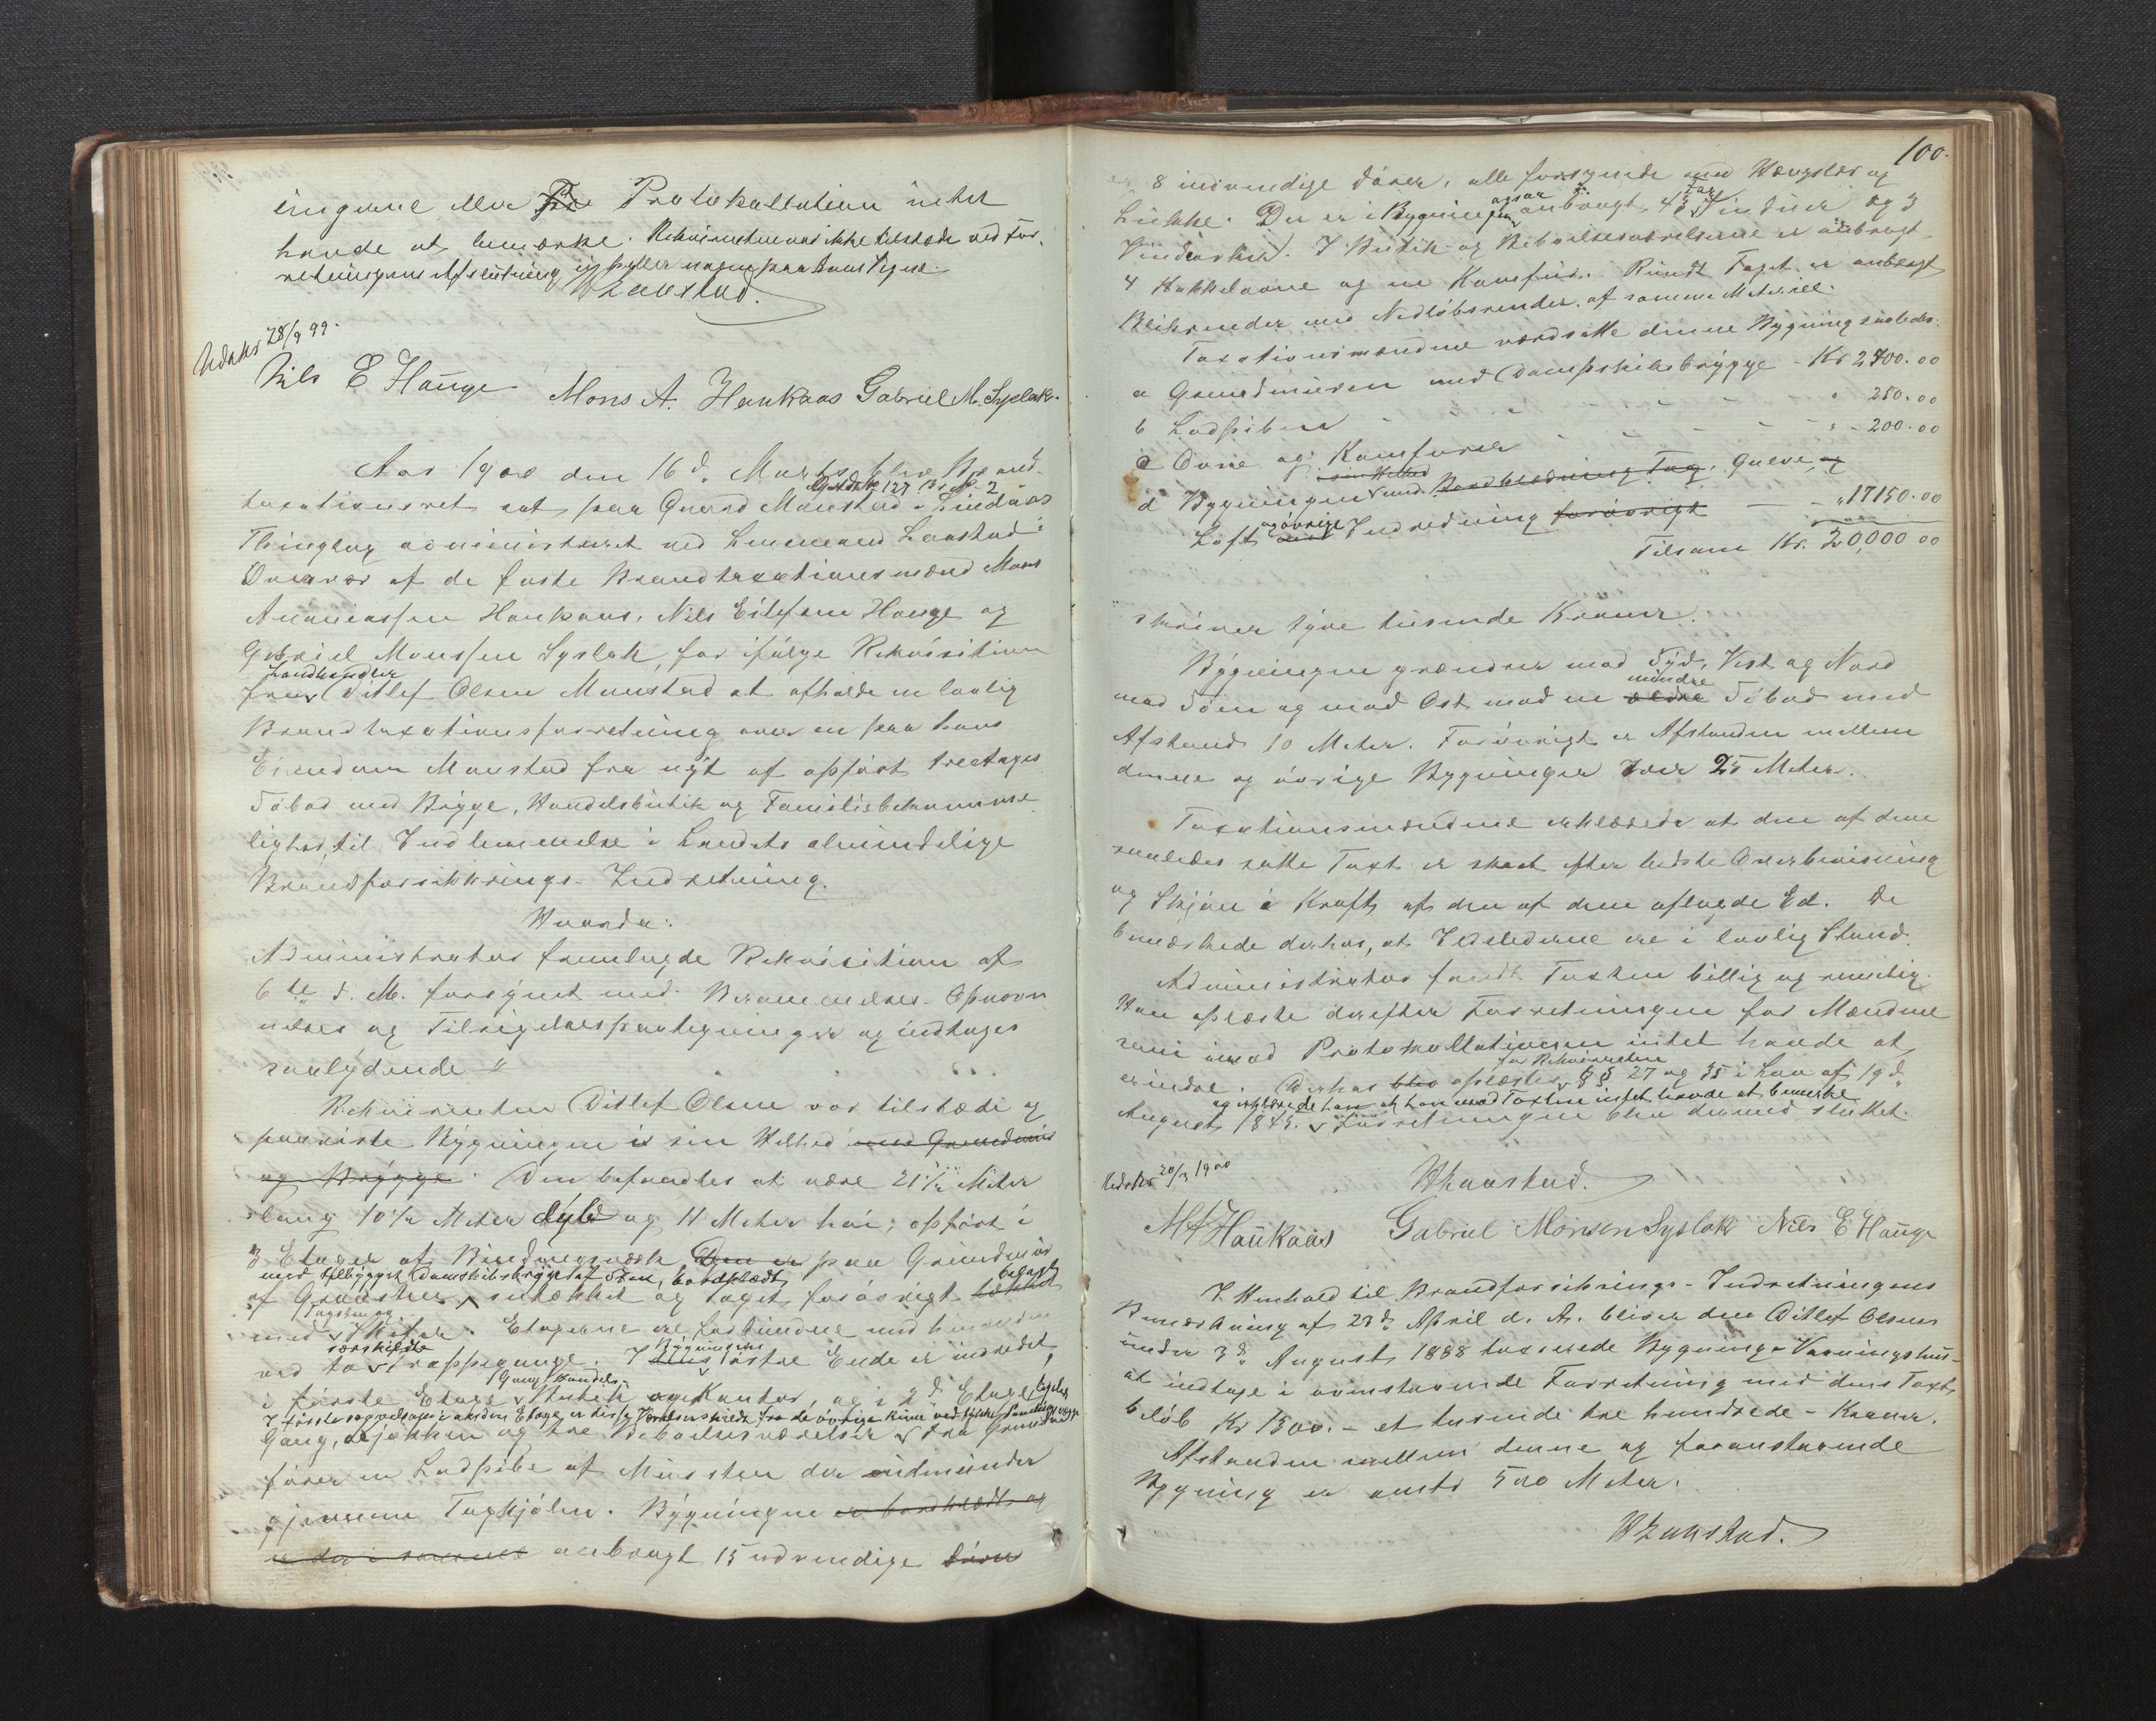 ingerne eller Protokollationen intet
havde at bemærke. Rekvirenten var ikke tilstede ved For-
retningens Afslutning ej heller nogen paa hans Vegne.
Laastad.
Udskr 28/9 99.
Nils E Hauge Mons A. Haukaas Gabriel M. Syslak.
Aar 1900 den 16d. Marts blev Brand-
Gaards No 127 Br. No 2
taxationsret sat paa Gaard Monstad i Lindaas
Thinglag administreret ved Lensmand Laastad i
Overvær af de faste Brandtaxationsmænd Mons
Andreassen Haukaas, Nils Eilefsen Hauge og
Gabriel Monssen Syslak, for ifølge Rekvisition
Landhandler
fra Ditlef Olsen Monstad at afholde en lovlig
Brandtaxationsforretning over en paa hans
Eiendom Monstad fra nyt af opført treetages
Søbod med Brygge, Handelsbutik og Familiebekvemme
lighed, til Indlemmelse i Landets almindelige
Brandforsikrings-Indretning.
Hvorda:
Administrator fremlagde Rekvisition af
6te d. M. forsynet med Berammelses- Opnævn
elses og Tilsigelsespaategninger og indtages
saalydende #
Rekvirenten Ditlef Olsen var tilstede og
paaviste Bygningen i sin Helhed med Grundmur
og Brygge. Den befandtes at være 21 1/2 Meter
lang 10 1/2 Meter dyb og 11 Meter høi; opført i
3 Etager af Bindingsværk Den er paa Grundmur
med tilbygget Dampskibsbrygge af Sten, bordklædt belagt
af Graasten, og Taget forøvrigt tækket
Tagsten og
med Skifer. Etagerne ere forbundne med hinanden
særskilte Bygningens
ved to Trappegange. I dens østre Ende er indredet
Gang, Handels-
i første Etage Butik og Kontor, og i 2d. Etage
I første saavelsom i anden Etage er disse Værelser skilt fra de øvrige Rum ved
Gang, Kjøkken og tre Beboelsesværelser Fra Grunden
fører en Ladpibe af Mursten der udmunder
gjennem Taghjelm. Bygningen er bordklædt og
er der i samme anbragt 15 udvendige Døre
100.
8 indvendige Døre, alle forsynede med Hængsler og
ogsaa Fag
Lukke. Der er i Bygningen anbragt 43 Vinduer og 3
I Butik- og Beboelsesværelserne er anbragt
4 Kakkelovne og en Komfur. Rundt Taget er anbragt
Blikrender med Nedløbsrender af samme Materiel.
Taxationsmændene værdsatte denne Bygning saaledes:
a Grundmuren med Dampskibsbrygge - Kr 2400.00
b Ladpiben " 250.00
c Ovne og Komfurer " - 200.00
i sin Helhed
d Bygningen med Bordklædning Tag, Gulve, og
og øvrige
Loft samt Indredning forøvrigt - " 17150.00
Tilsam Kr. 20,000 00
skriver tyve tusinde Kroner.
Bygningen grændser mod Syd, Vest og Nord
mindre
mod Søen og mod Øst mod en ældre Søbod med
Afstand 10 Meter. Forøvrigt er Afstanden mellem
denne og øvrige Bygninger over 25 Meter.
Taxationsmændene erklærede at den af dem
saaledes satte Taxt er skeet efter bedste Overbevisning
og Skjøn i Kraft af den af dem aflagde Ed. De
bemærkede derhos, at Ildstederne ere i lovlig Stand.
Administrator fandt Taxten billig og rimelig.
Han oplæste derefter Forretningen for Mændene
som imod Protokollationen intet havde at
for Rekvirenten
erindre. Derhos blev oplæstes §§ 27 og 35 i Lov af 19d.
og erklærede han at han mod Taxten intet havde at bemærke
August 1845. Forretningen blev dermed sluttet.
Udskr 20/3 1900
Laastad.
MAHaukaas Gabriel Monsen Syslak Nils E Hauge
I Henhold til Brandforsikrings-Indretningens
Bemærkning af 28d. April d. A. bliver den Ditlef Olsens
under 3d. August 1888 taxerede Bygning Vaaningshus-
at indtage i ovenstaaende Forretning med dens Taxt
beløb Kr 1300. - et tusinde tre hundrede - Kroner.
Afstanden mellem denne og foranstaaende
Bygning er omtr 500 Meter.
Laastad.